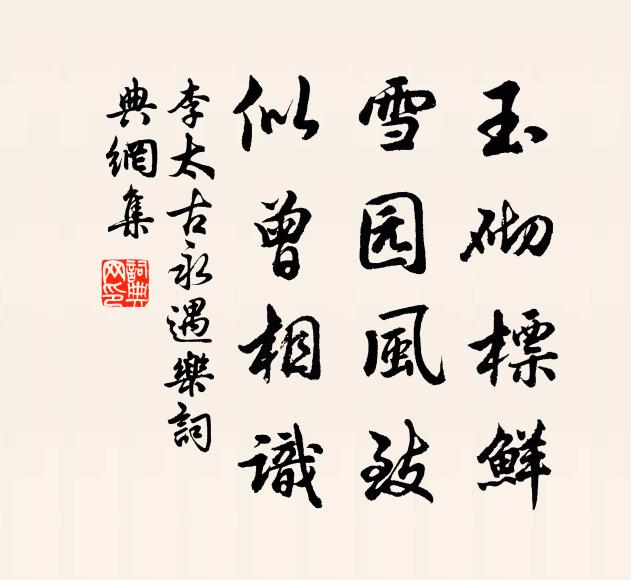 玉砌標鮮
雪园風致
似曾相識
李太古永遇樂詞
典網集
詞典
网印